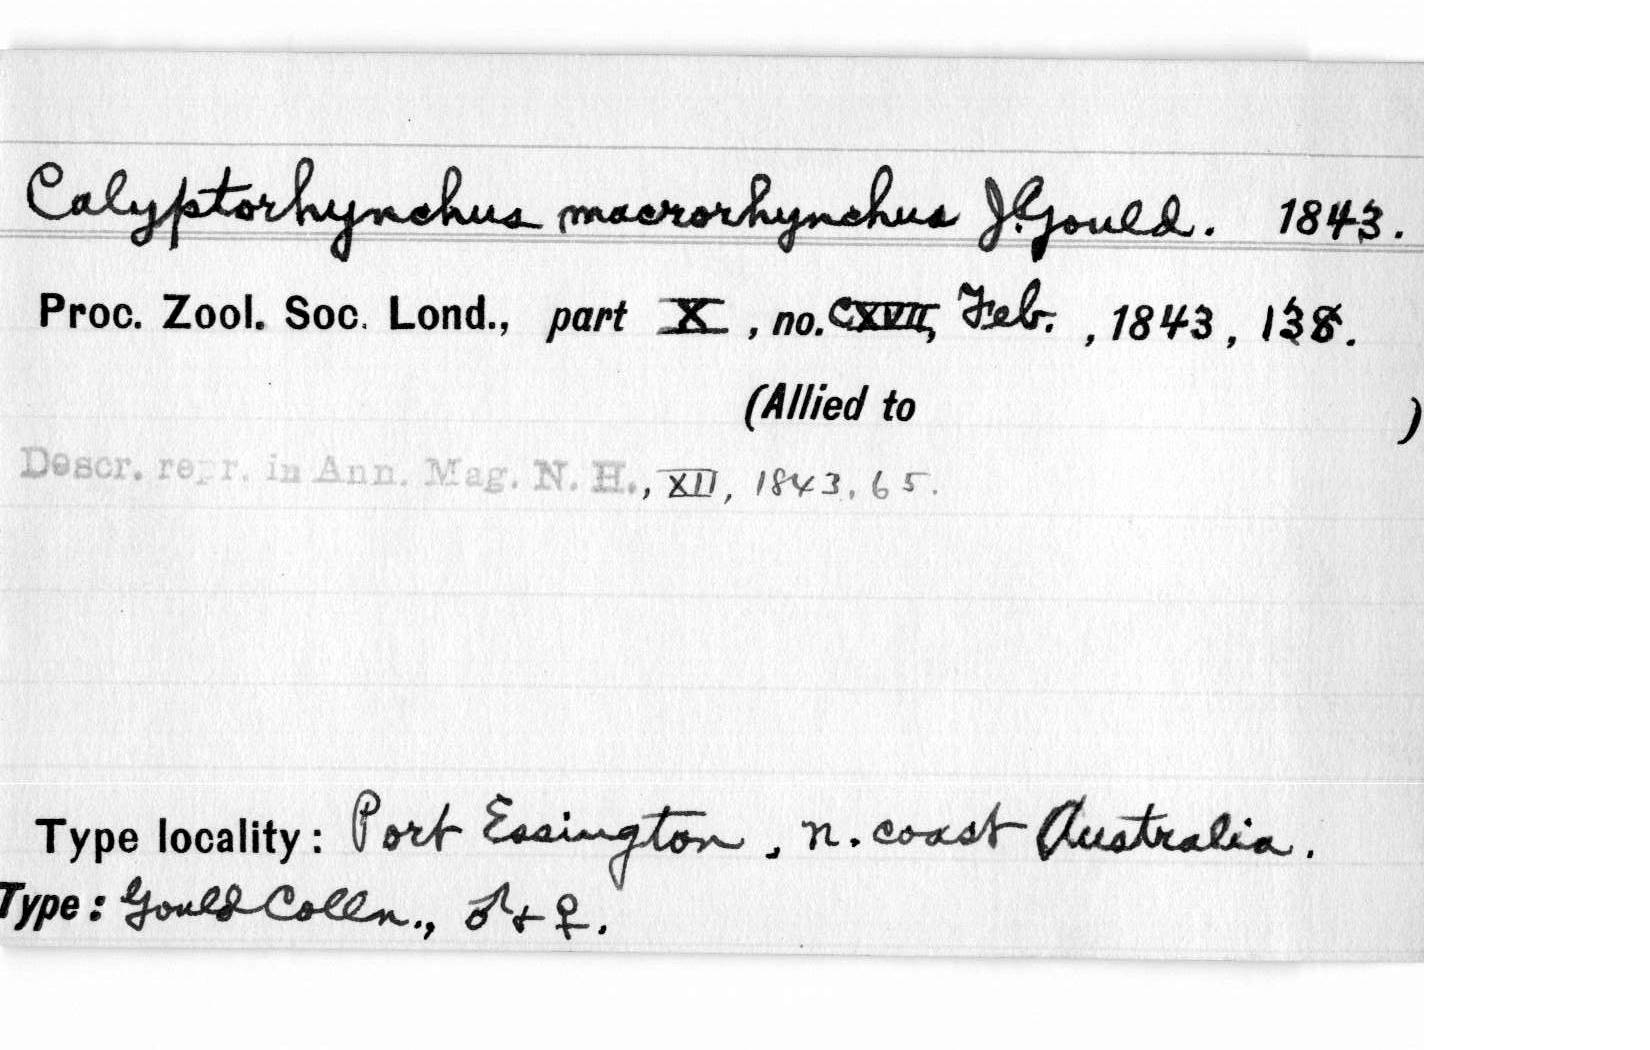 Calyptorhynchus macrorhynchus J. Gould. 1843.
Proc. Zool. Soc. Lond., part X, no. CXVII, Feb., 1843, 138.
(Allied to )
Descr. repr. in Ann. Mag. N. H., XII, 1843, 65.
Type locality: Port Essington, n. coast Australia.
Type: Gould Colln., ♂ + ♀.